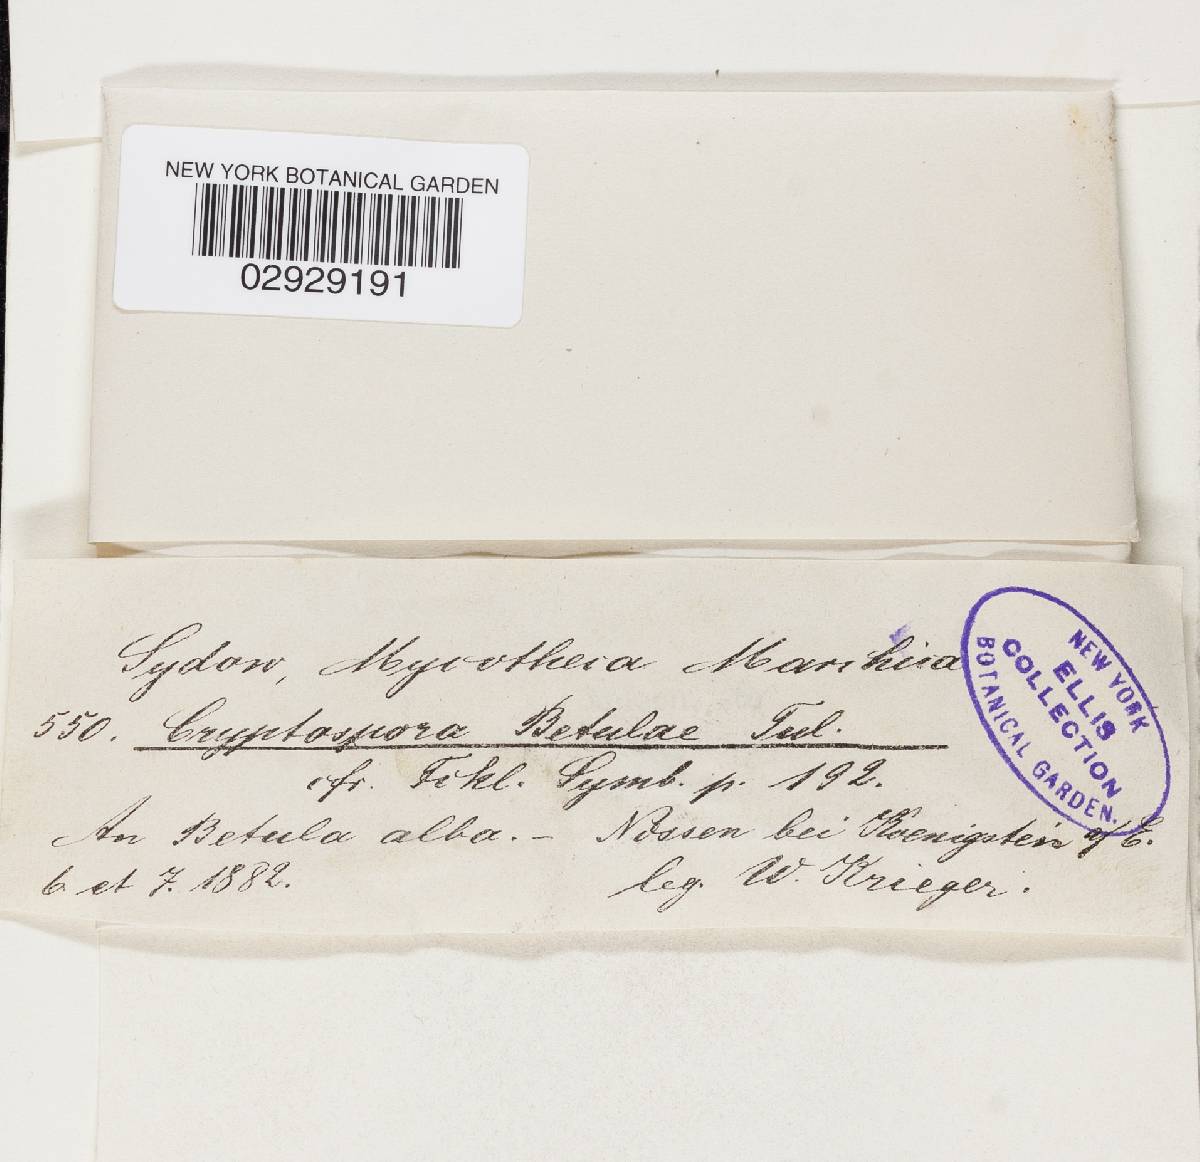 NEW YORK BOTANICAL GARDEN
02929191
Sydow, Mycotheca Marchica
550. Cryptospora Betulae Tul.
cfr. Fckl. Symb. p. 192.
An Betula alba. – Nossen bei Koenigstein a/E.
6. et 7. 1882. leg. W. Krieger.
NEW YORK
ELLIS
COLLECTION
BOTANICAL GARDEN.